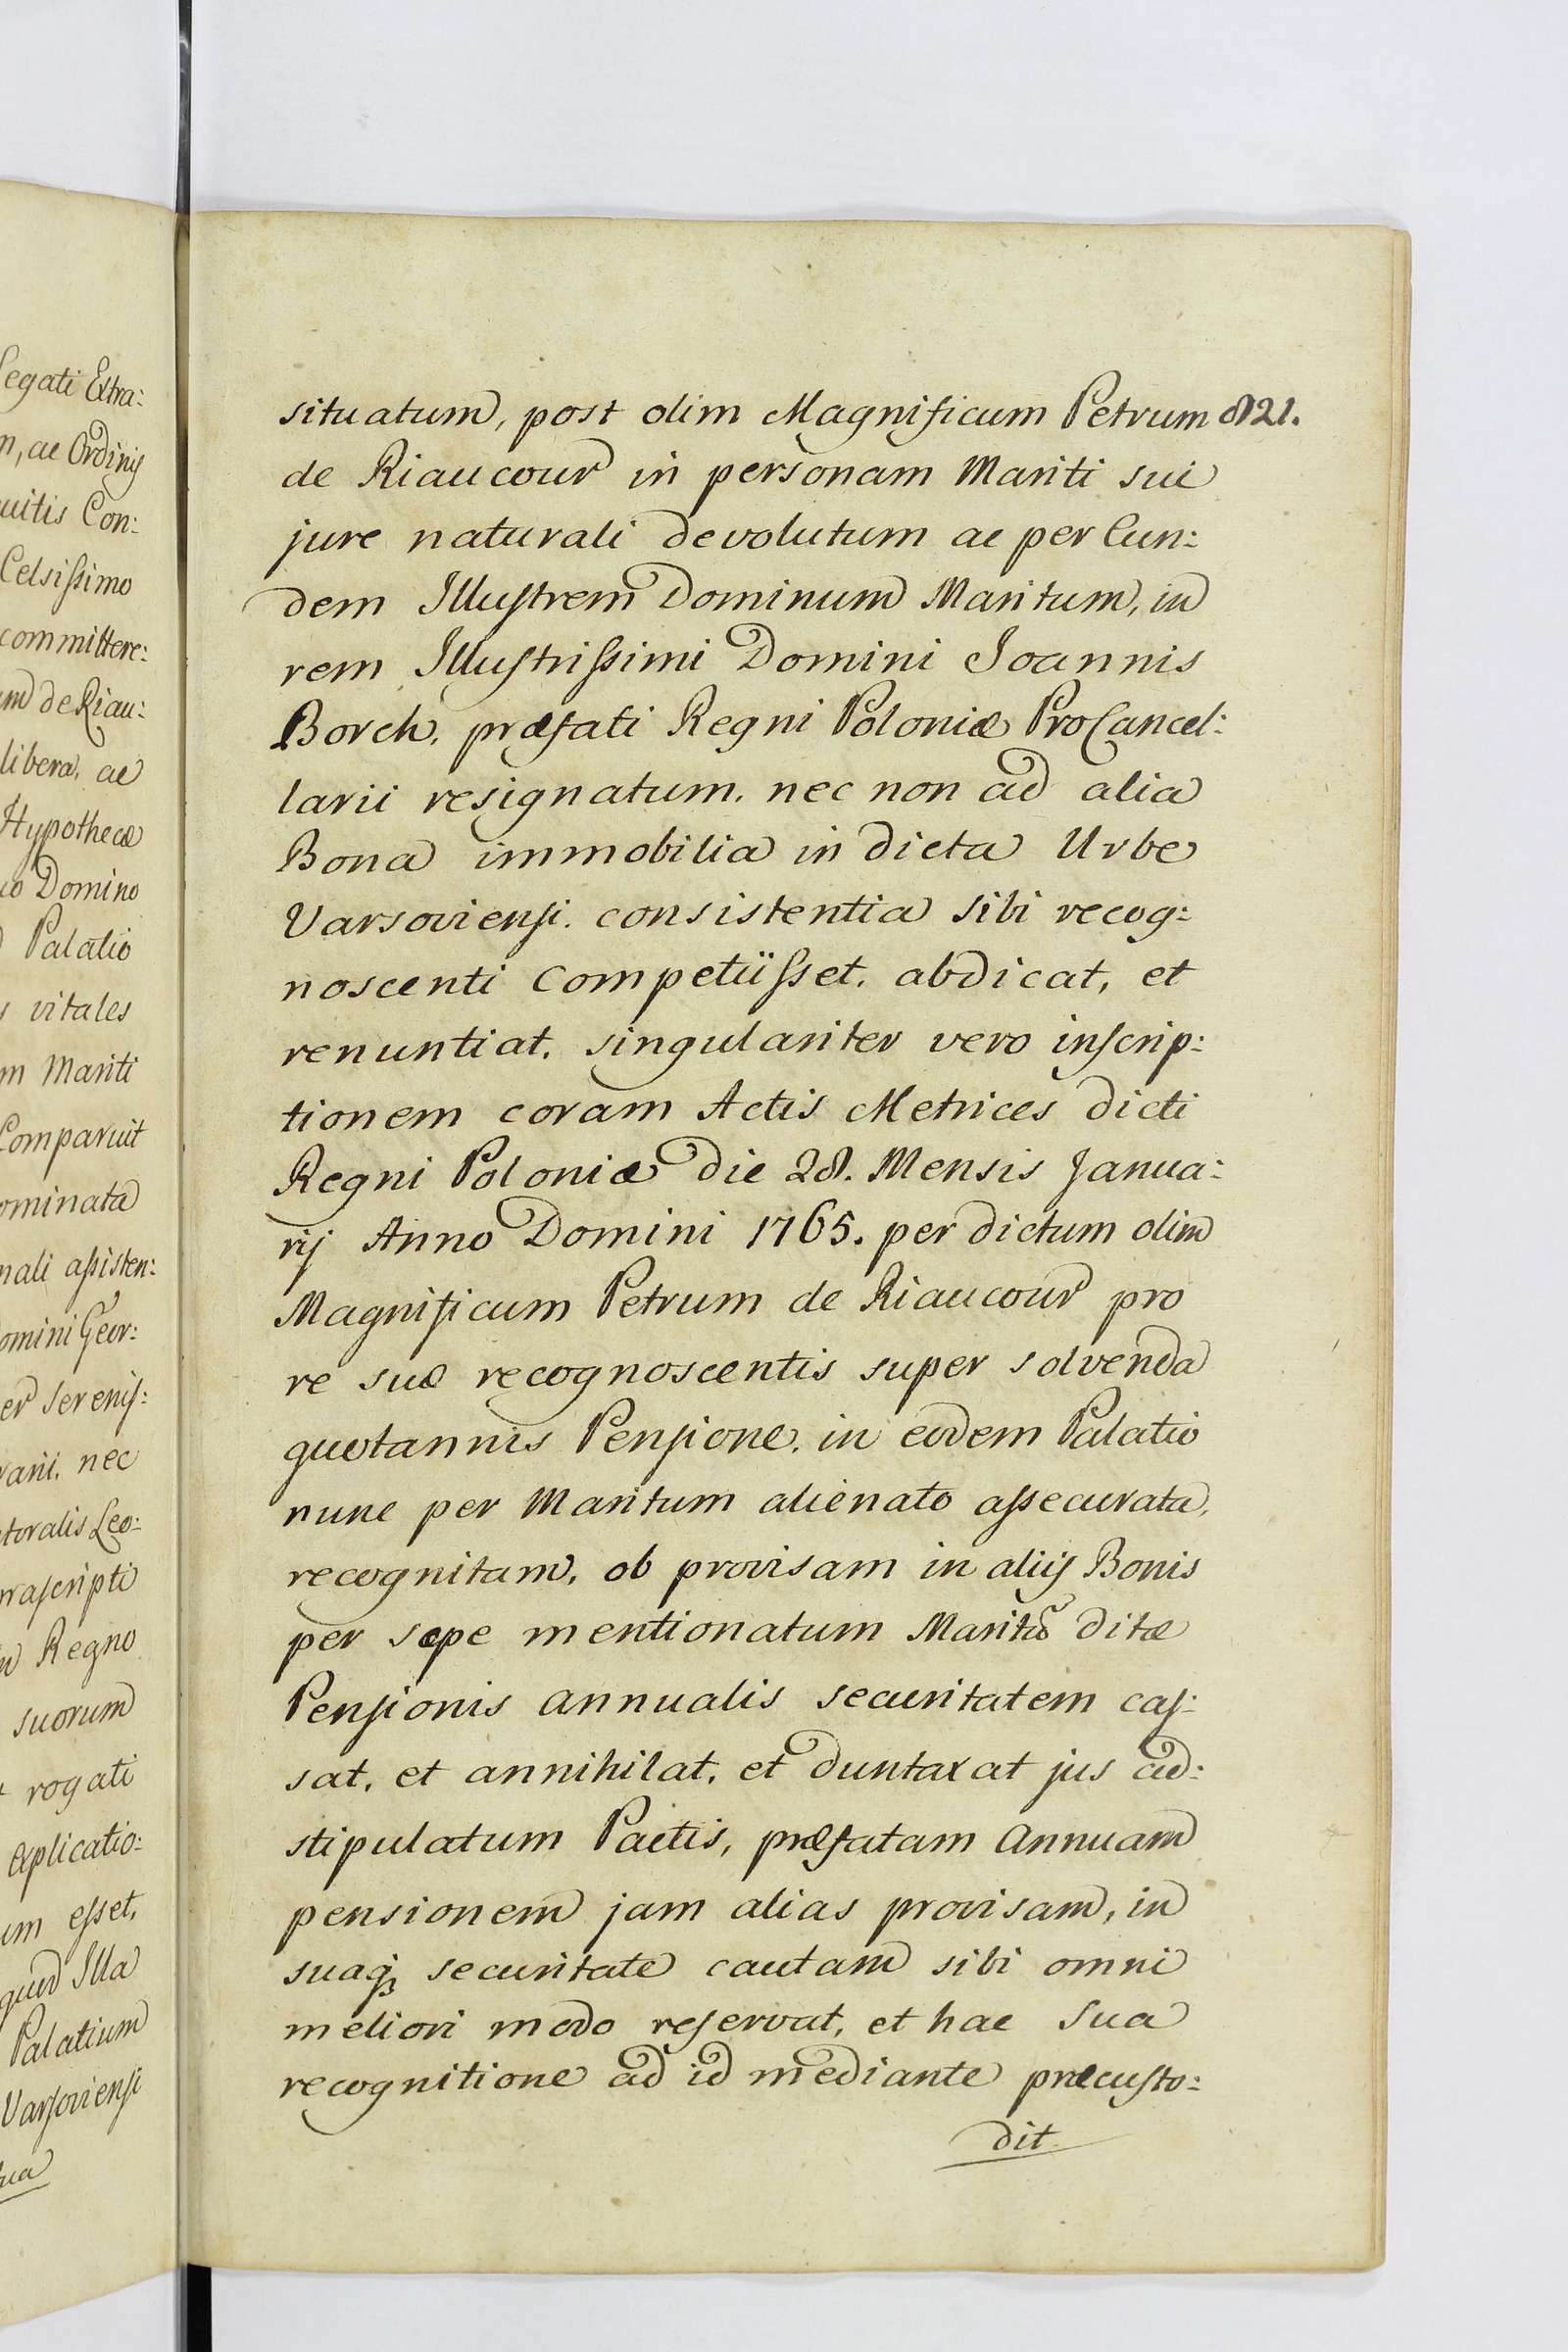 egati Extra:
n, ac Ordinis
uitis Con:
Celsissimo
committere:
um de Riau:
libera, ac
Hypothecæ
io Domino
Palatio
vitales
m Mariti
Comparuit
ominata
nali assisten:
omini Geor:
er Serenis:
rani, nec
toralis Leo:
rascripti
Regno
suorum
rogati
explicatio:
um esset,
quod Illa
Palatium
Varsoviensi
sua
situatum, post olim Magnificum Petrum 821.
de Riaucour in personam Mariti sui
jure naturali devolutum ac per Eun:
dem Illustrem Dominum Maritum, in
rem Illustrissimi Domini Joannis
Borch, præfati Regni Poloniæ ProCancel:
larii resignatum, nec non ad alia
Bona immobilia in dicta Urbe
Varsoviensi consistentia sibi recog:
noscenti competiisset, abdicat, et
renuntiat, singulariter vero inscrip:
tionem coram Actis Metrices dicti
Regni Poloniæ die 28. Mensis Janua:
rij Anno Domini 1765. per dictum olim
Magnificum Petrum de Riaucour pro
re suæ recognoscentis super solvenda
quotannis Pensione, in eodem Palatio
nunc per Maritum alienato assecurata,
recognitam, ob provisam in aliis Bonis
per sæpe mentionatum Maritũ ditæ
Pensionis annualis securitatem cas:
sat, et annihilat, et duntaxat jus ad:
stipulatum Pactis, præfatam Annuam
pensionem jam alias provisam, in
suaq; securitate cautam sibi omni
meliori modo reservat, et hac sua
recognitione ad id mediante præcusto:
dit